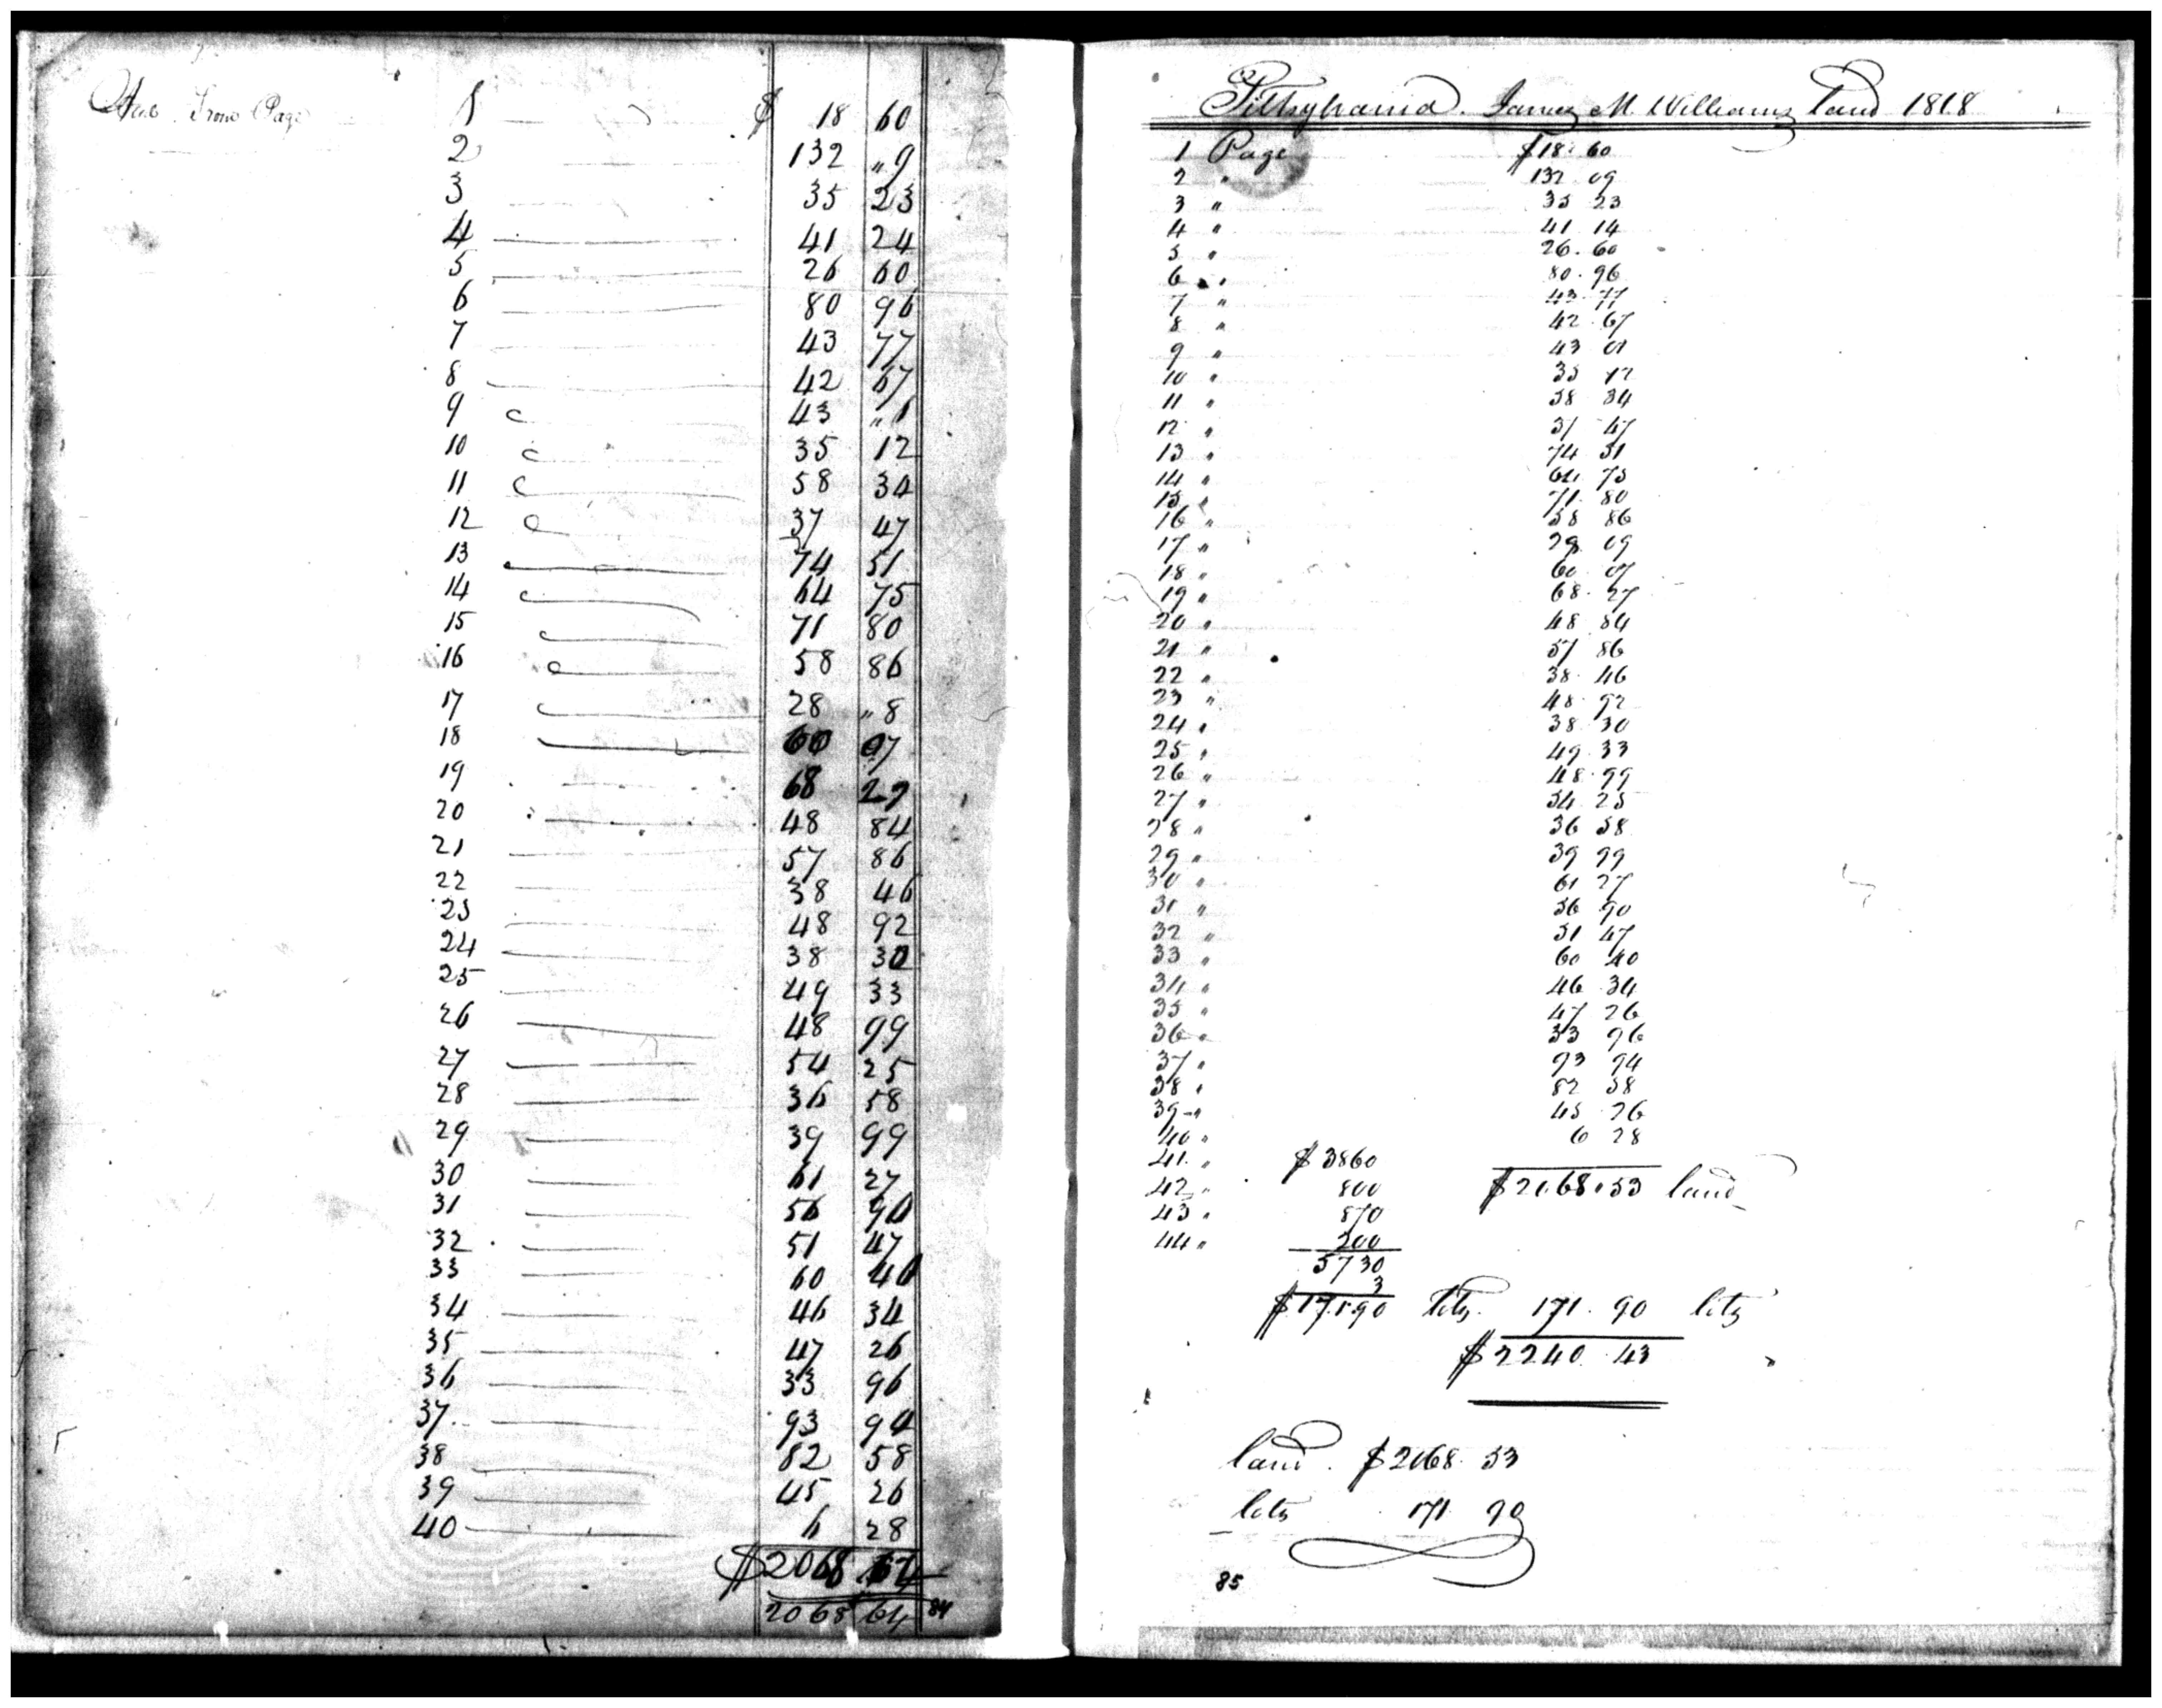 From Page 1 $ 18 60
2 132 „9
3 35 23
4 41 24
5 26 60
6 80 96
7 43 77
8 42 67
9 43 „1
10 35 12
11 58 34
12 37 47
13 74 51
14 64 75
15 71 80
16 58 86
17 28 „8
18 60 07
19 68 27
20 48 84
21 57 86
22 38 46
23 48 92
24 38 30
25 49 33
26 48 99
27 54 25
28 36 58
29 39 99
30 61 27
31 56 90
32 51 47
33 60 40
34 46 34
35 47 26
36 33 96
37 93 94
38 82 58
39 45 26
40 6 28
$2068 64
2068 64 84
Pittsylvania. James M. Williams land 1818
1 Page $18. 60
2 " 132 09
3 " 35 23
4 " 41 14
5 " 26. 60
6 " 80. 96
7 " 43. 77
8 " 42 67
9 " 43 01
10 " 35 12
11 " 58 34
12 " 37 47
13 " 74 51
14 " 64 75
15 " 71. 80
16 " 58 86
17 " 28 09
18 " 60 07
19 " 68. 27
20 " 48 84
21 " 57 86
22 " 38. 46
23 " 48. 92
24 " 38 30
25 " 49. 33
26 " 48. 99
27 " 54 25
28 " 36 58
29 " 39 99
30 " 61 27
31 " 56 90
32 " 51 47
33 " 60 40
34 " 46 34
35 " 47 26
36 " 33 96
37 " 93 94
38 " 82 58
39 " 45 26
40 " 6 28
41 " $3860
42 " 800 $2068.53 land
43 " 870
44 " 200
5730
3
$171.90 lots. 171. 90 lots
$2240. 43
land. $2068. 53
lots 171 90
85